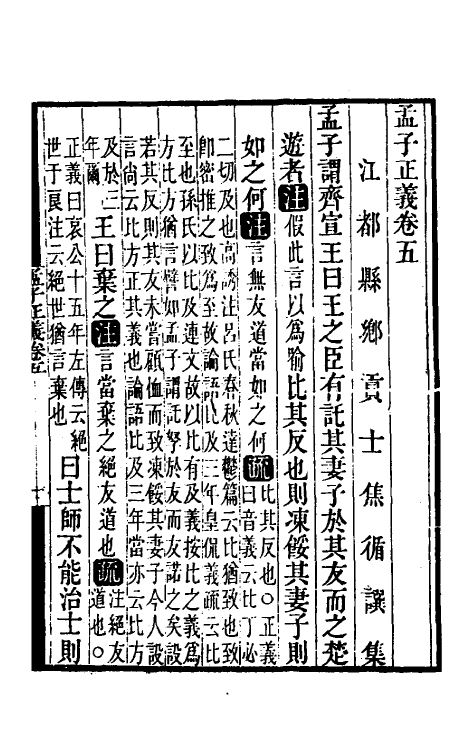 孟子正義卷五
江都縣鄉貢士焦循譔集
孟子謂齊宣王曰王之臣有託其妻子於其友而之楚
遊者注假此言以爲喻比其反也則凍餒其妻子則
如之何注言無友道當如之何疏比其反也○正義
曰音義云比丁必
二切及也高誘注呂氏春秋達鬱篇云比猶致也致
卽密推之致爲至故論語比及三年皇侃義疏云比
至也孫氏以比及連文故以比有及義按比之義爲
方比方猶言譬如孟子謂託孥於友而友諾之矣設
若其反則其友未嘗顧恤而致凍餒其妻子今人設
言尚云比方正其義也論語比及三年當亦云比方
及於三
年爾
王曰棄之注言當棄之絕友道也疏注絕友
道也○
正義曰哀公十五年左傳云絕
世于良注云絕世猶言棄也
曰士師不能治士則
孟子正義卷五